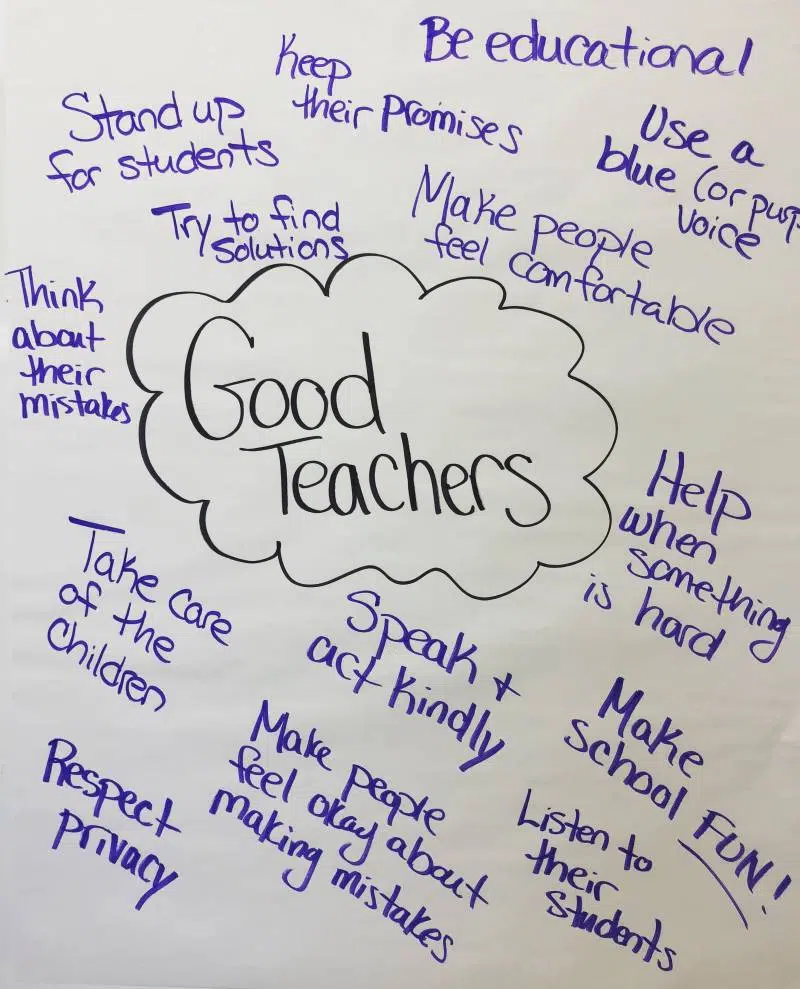 Be educational
Keep
their promises
Stand up
for students
Use a
blue (or purp
voice
Try to find
solutions
Make people
feel comfortable
Think
about
their
mistakes
Good
Teachers
Help
when
something
is hard
Take care
of the
children
Speak +
act kindly
Make
school FUN!
Respect
privacy
Make people
feel okay about
making mistakes
Listen to
their
students